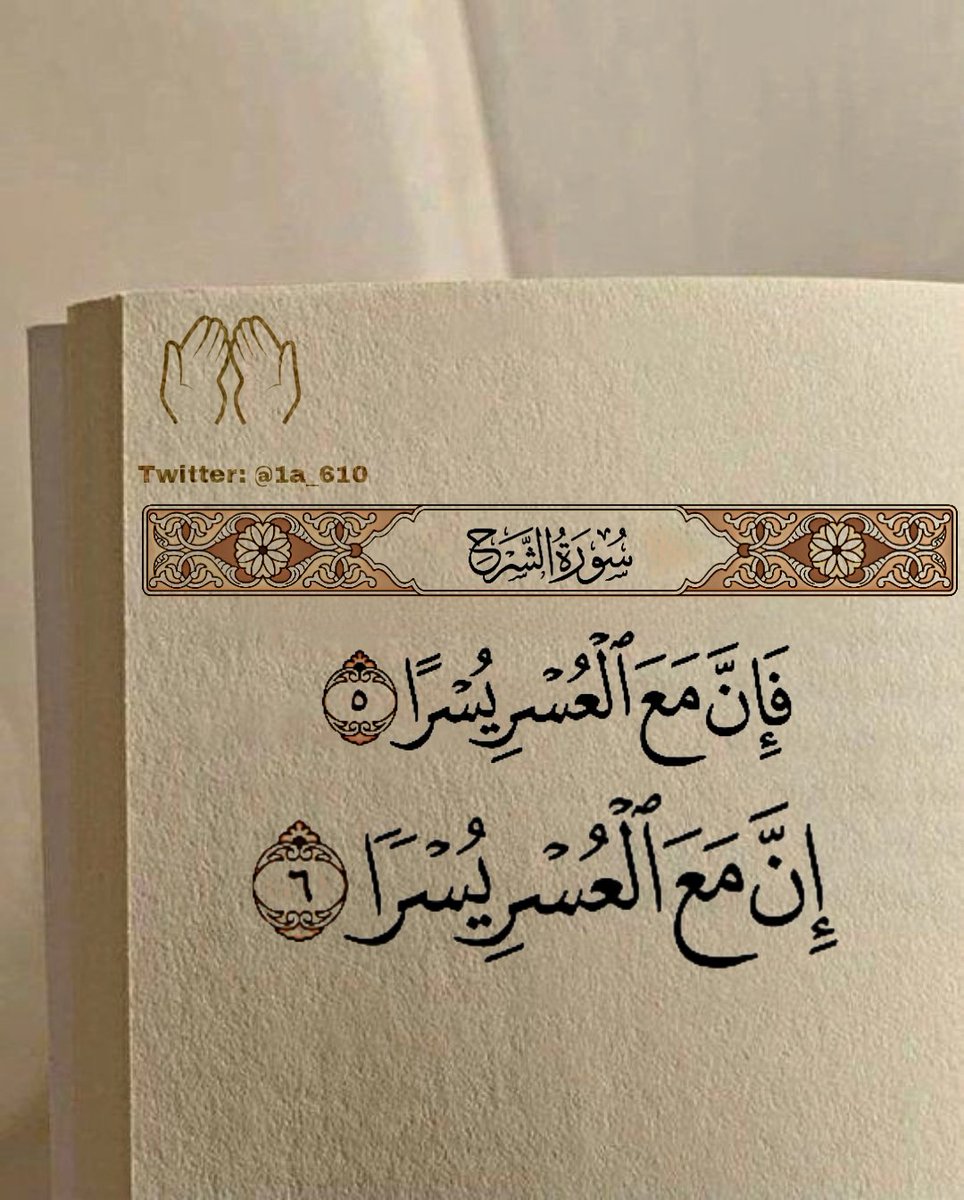 Twitter: @1a_610
سُورَةُ الشَّرَحِ
فَإِنَّ مَعَ ٱلْعُسْرِ يُسْرًا ٥
إِنَّ مَعَ ٱلْعُسْرِ يُسْرًا ٦